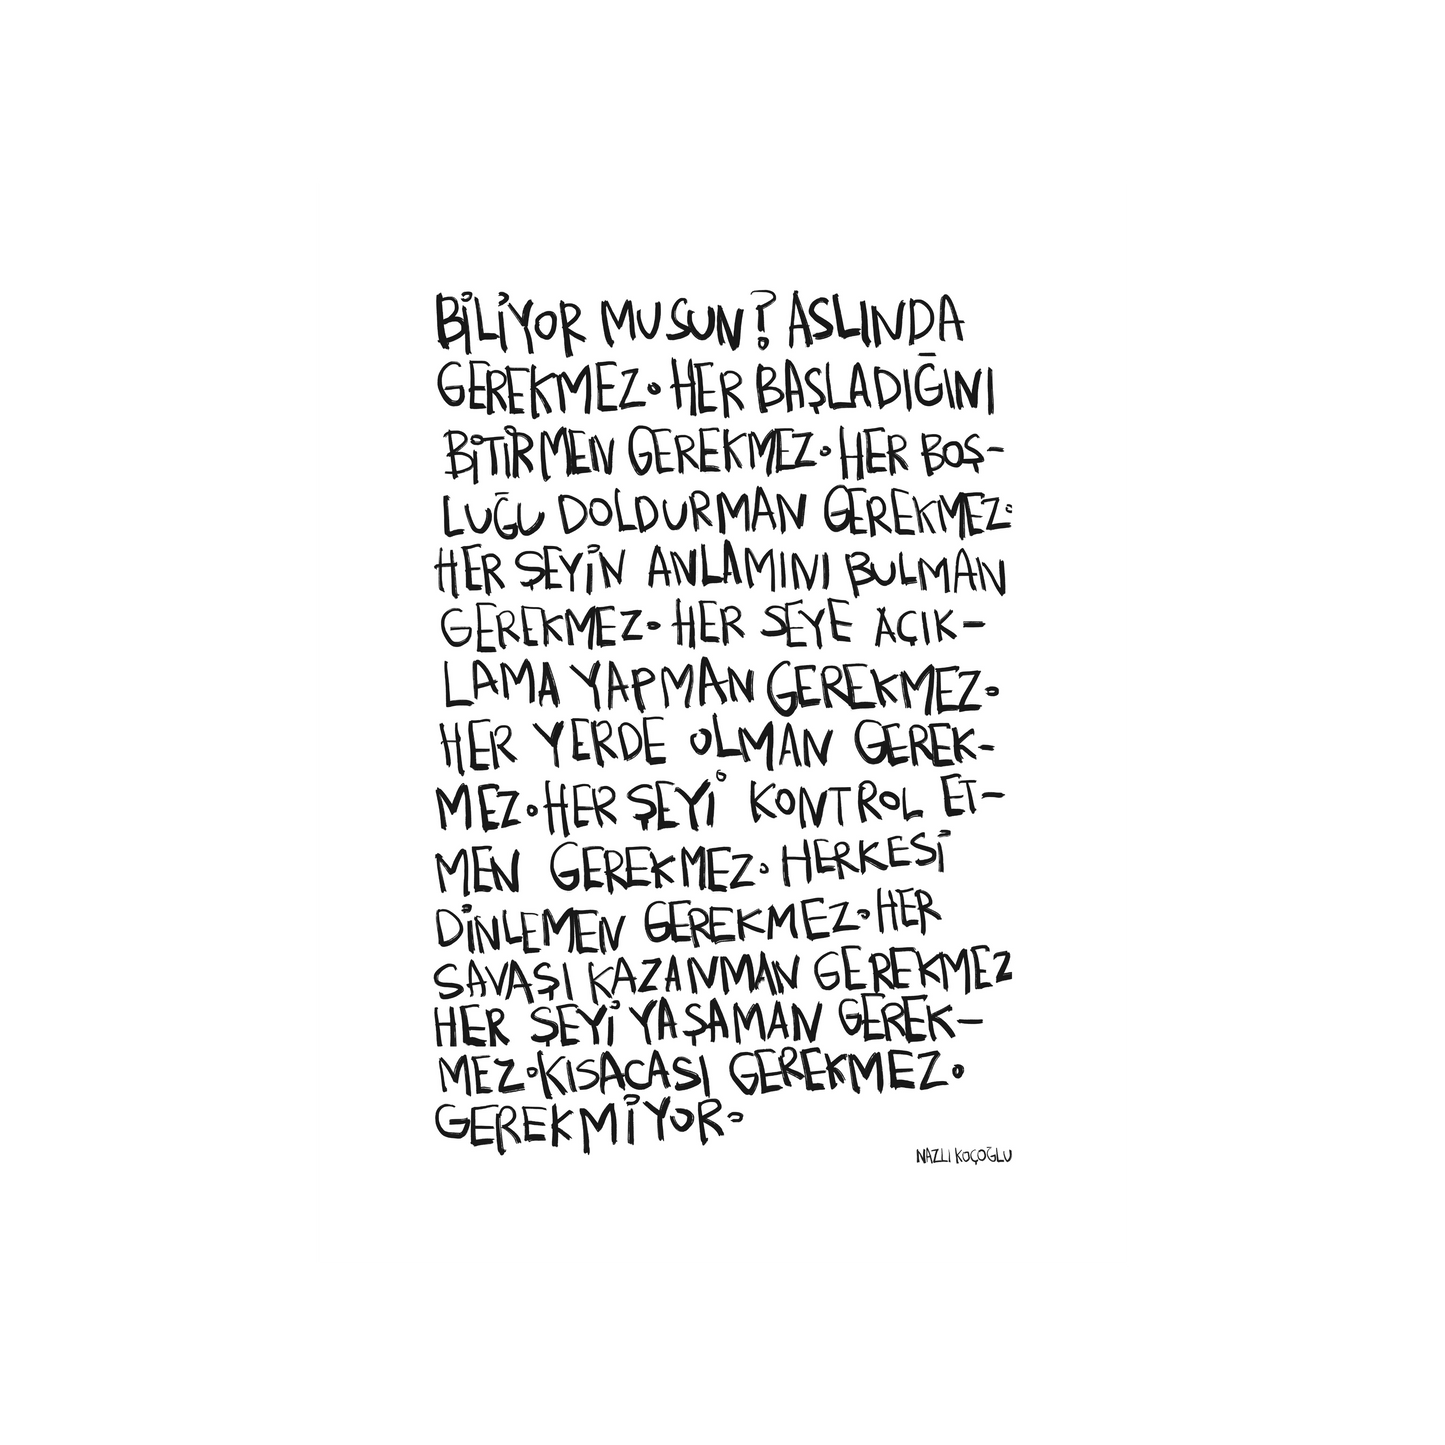 BİLİYOR MUSUN? ASLINDA
GEREKMEZ. HER BAŞLADIĞINI
BİTİRMEN GEREKMEZ. HER BOŞ-
LUĞU DOLDURMAN GEREKMEZ.
HER ŞEYİN ANLAMINI BULMAN
GEREKMEZ. HER SEYE AÇIK-
LAMA YAPMAN GEREKMEZ.
HER YERDE OLMAN GEREK-
MEZ. HER ŞEYİ KONTROL ET-
MEN GEREKMEZ. HERKESİ
DİNLEMEN GEREKMEZ. HER
SAVAŞI KAZANMAN GEREKMEZ
HER ŞEYİ YAŞAMAN GEREK-
MEZ. KISACASI GEREKMEZ.
GEREKMİYOR.
NAZLI KOÇOĞLU